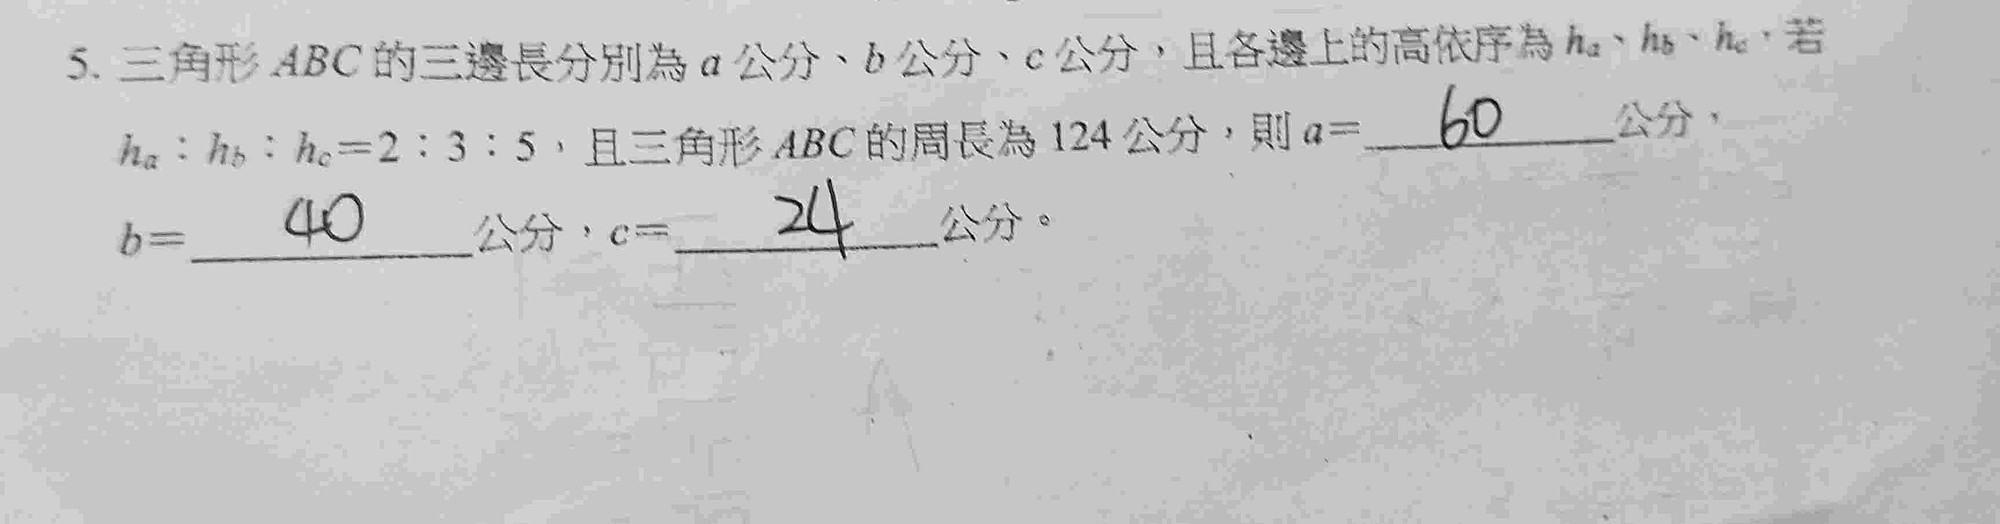 5. 三角形 ABC 的三邊長分別為 a 公分、b 公分、c 公分，且各邊上的高依序為 hₐ、h_b、h_c，若
hₐ：h_b：h_c＝2：3：5，且三角形 ABC 的周長為 124 公分，則 a＝ 60 公分，
b＝ 40 公分，c＝ 24 公分。